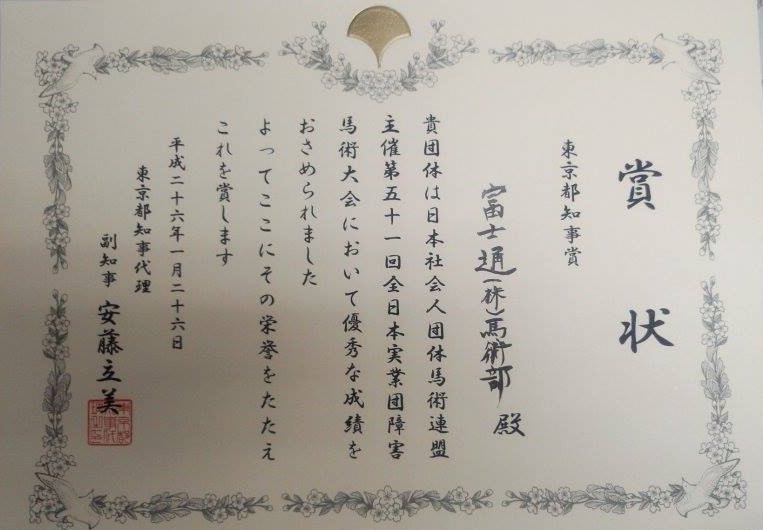 賞状
東京都知事賞
富士通(株)馬術部 殿
貴団体は日本社会人団体馬術連盟
主催第五十一回全日本実業団障害
馬術大会において優秀な成績を
おさめられました
よってここにその栄誉をたたえ
これを賞します
平成二十六年一月二十六日
東京都知事代理
副知事 安藤立美